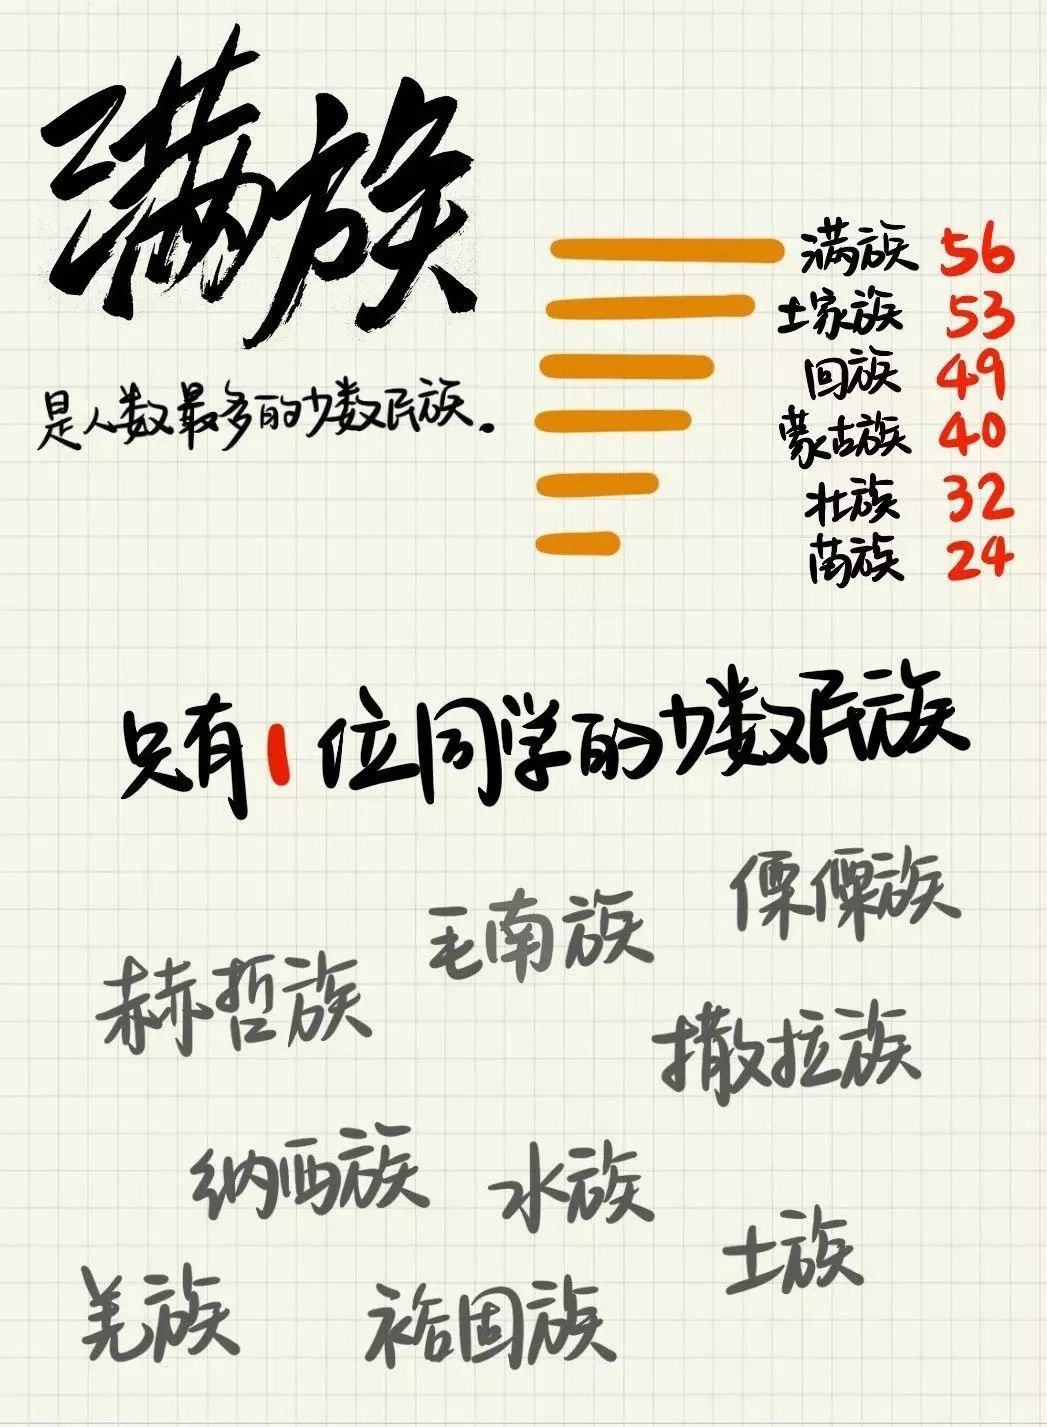 满族
是人数最多的少数民族。
满族 56
土家族 53
回族 49
蒙古族 40
壮族 32
苗族 24
只有1位同学的少数民族
傈僳族
毛南族
赫哲族
撒拉族
纳西族
水族
土族
羌族
裕固族